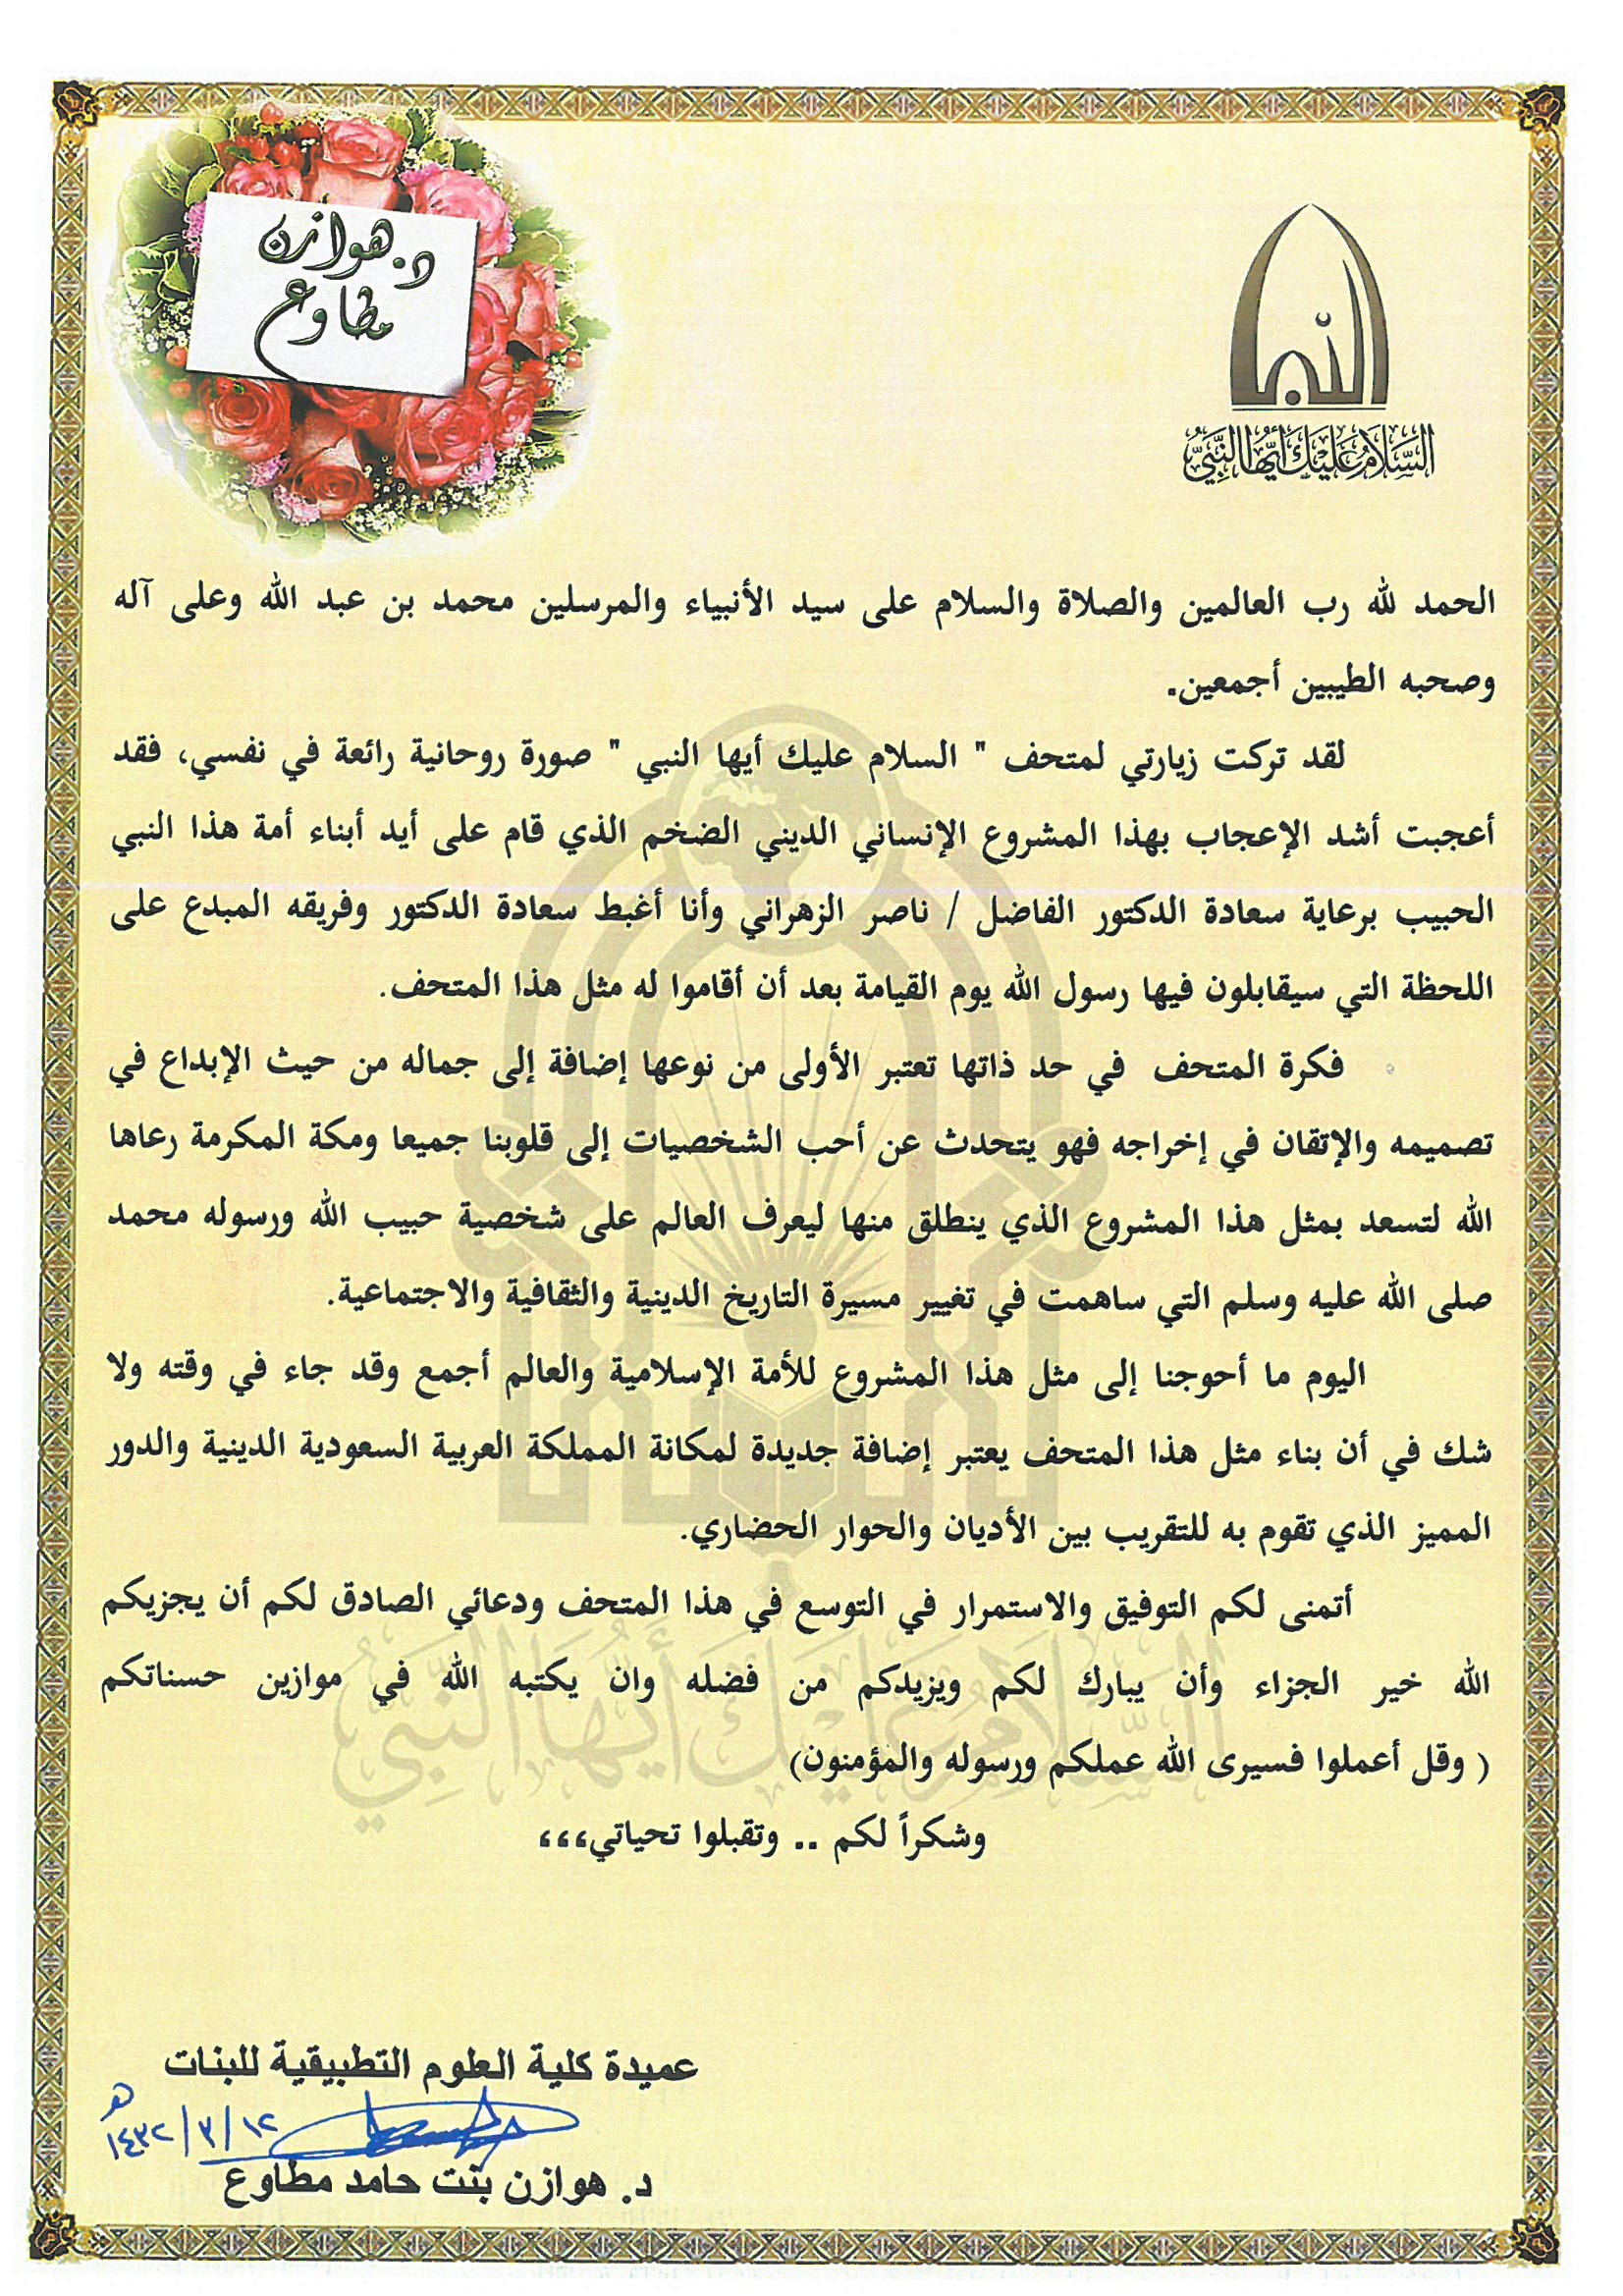 د. هوازن
مطاوع
النبي
السلام عليك أيها النبي
الحمد لله رب العالمين والصلاة والسلام على سيد الأنبياء والمرسلين محمد بن عبد الله وعلى آله
وصحبه الطيبين أجمعين.
لقد تركت زيارتي لمتحف " السلام عليك أيها النبي " صورة روحانية رائعة في نفسي، فقد
أعجبت أشد الإعجاب بهذا المشروع الإنساني الديني الضخم الذي قام على أيد أبناء أمة هذا النبي
الحبيب برعاية سعادة الدكتور الفاضل / ناصر الزهراني وأنا أغبط سعادة الدكتور وفريقه المبدع على
اللحظة التي سيقابلون فيها رسول الله يوم القيامة بعد أن أقاموا له مثل هذا المتحف.
فكرة المتحف في حد ذاتها تعتبر الأولى من نوعها إضافة إلى جماله من حيث الإبداع في
تصميمه والإتقان في إخراجه فهو يتحدث عن أحب الشخصيات إلى قلوبنا جميعا ومكة المكرمة رعاها
الله لتسعد بمثل هذا المشروع الذي ينطلق منها ليعرف العالم على شخصية حبيب الله ورسوله محمد
صلى الله عليه وسلم التي ساهمت في تغيير مسيرة التاريخ الدينية والثقافية والاجتماعية.
اليوم ما أحوجنا إلى مثل هذا المشروع للأمة الإسلامية والعالم أجمع وقد جاء في وقته ولا
شك في أن بناء مثل هذا المتحف يعتبر إضافة جديدة لمكانة المملكة العربية السعودية الدينية والدور
المميز الذي تقوم به للتقريب بين الأديان والحوار الحضاري.
أتمنى لكم التوفيق والاستمرار في التوسع في هذا المتحف ودعائي الصادق لكم أن يجزيكم
الله خير الجزاء وأن يبارك لكم ويزيدكم من فضله وان يكتبه الله في موازين حسناتكم
( وقل أعملوا فسيرى الله عملكم ورسوله والمؤمنون)
وشكراً لكم .. وتقبلوا تحياتي،،،
السلام عليك أيها النبي
عميدة كلية العلوم التطبيقية للبنات
١٢/٣/١٤٣٢هـ
د. هوازن بنت حامد مطاوع